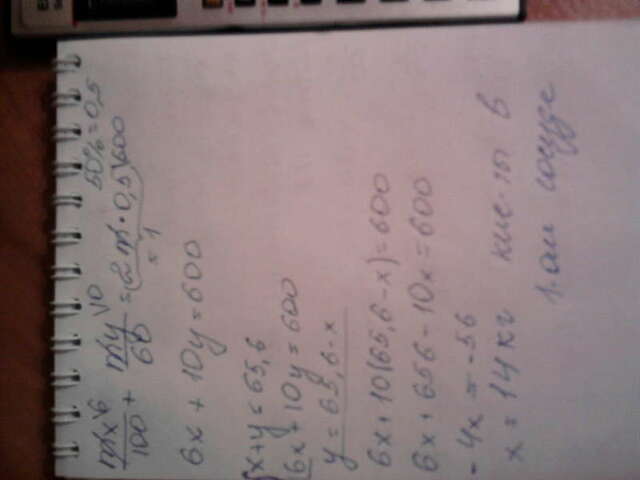 50% = 0,5
mx\6/100 + my\10/60 = (2m · 0,5)\600
= 1
6x + 10y = 600
{x + y = 65,6
6x + 10y = 600
y = 65,6 - x
6x + 10(65,6 - x) = 600
6x + 656 - 10x = 600
- 4x = - 56
x = 14 кг кис-ты в
1-ом сосуде